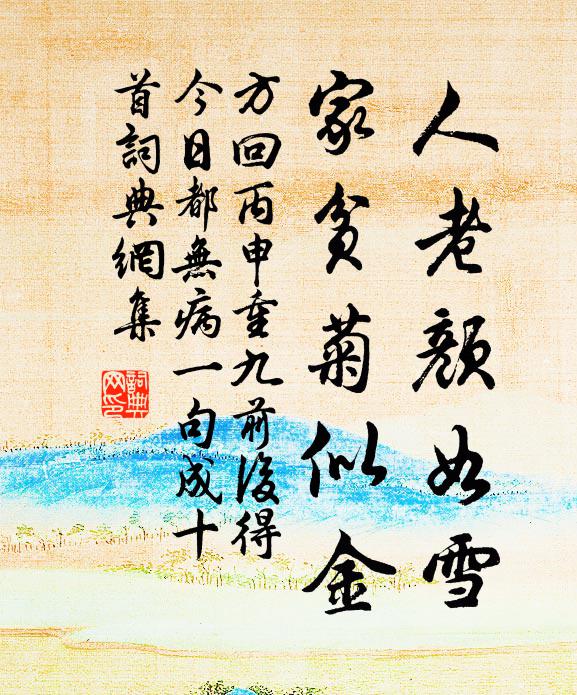 人老顏如雪
家貧菊似金
方回丙申重九前後得
今日都無病一句成十
首詞典網集
詞典网印